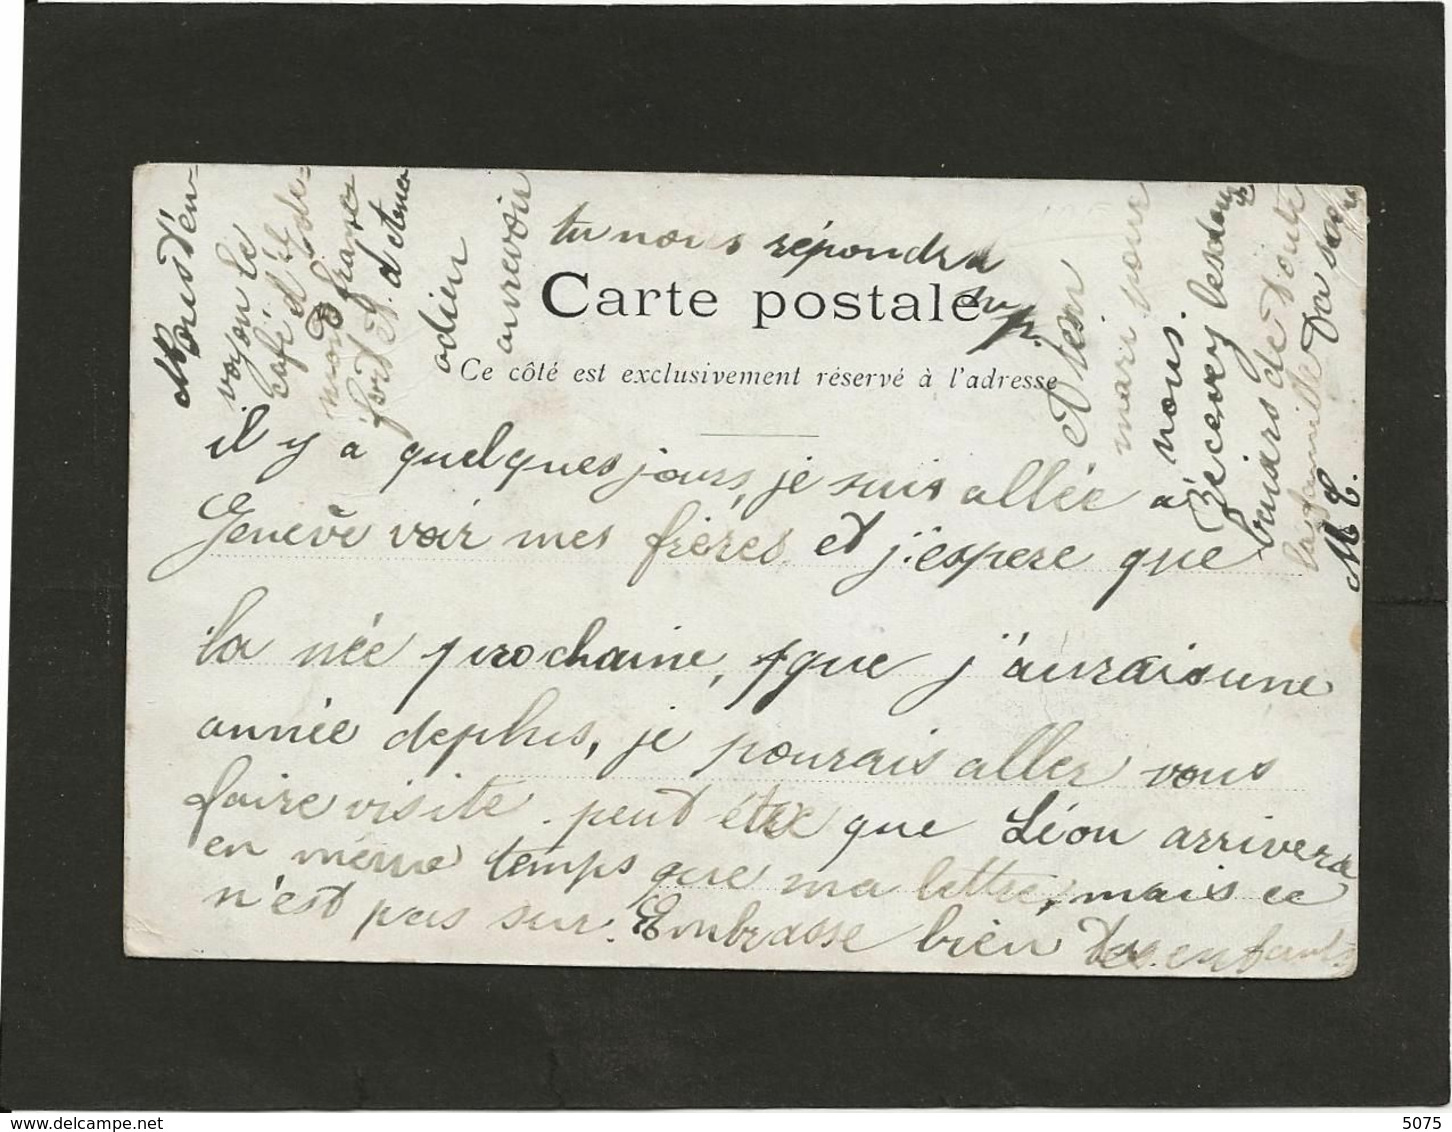 tu nous répondra
svp.
Carte postale
Ce côté est exclusivement réservé à l'adresse
il y à quelques jours, je suis allée à
Genève voir mes frères et j'espere que
la née prochaine, que j'aurais une
année deplus, je pourais aller vous
faire visite. peut être que Léon arrivera
en même temps que ma lettre, mais ce
n'est pas sur. Embrasse bien tes enfants
et ton
mari pour
nous.
Recevez les
bonjours de toute
la famille Ta sœur
M C.
Nous t'en-
voyon le
café d'il
mon de-
français
fort et
adieu
aurevoir
www.delcampe.net
5075